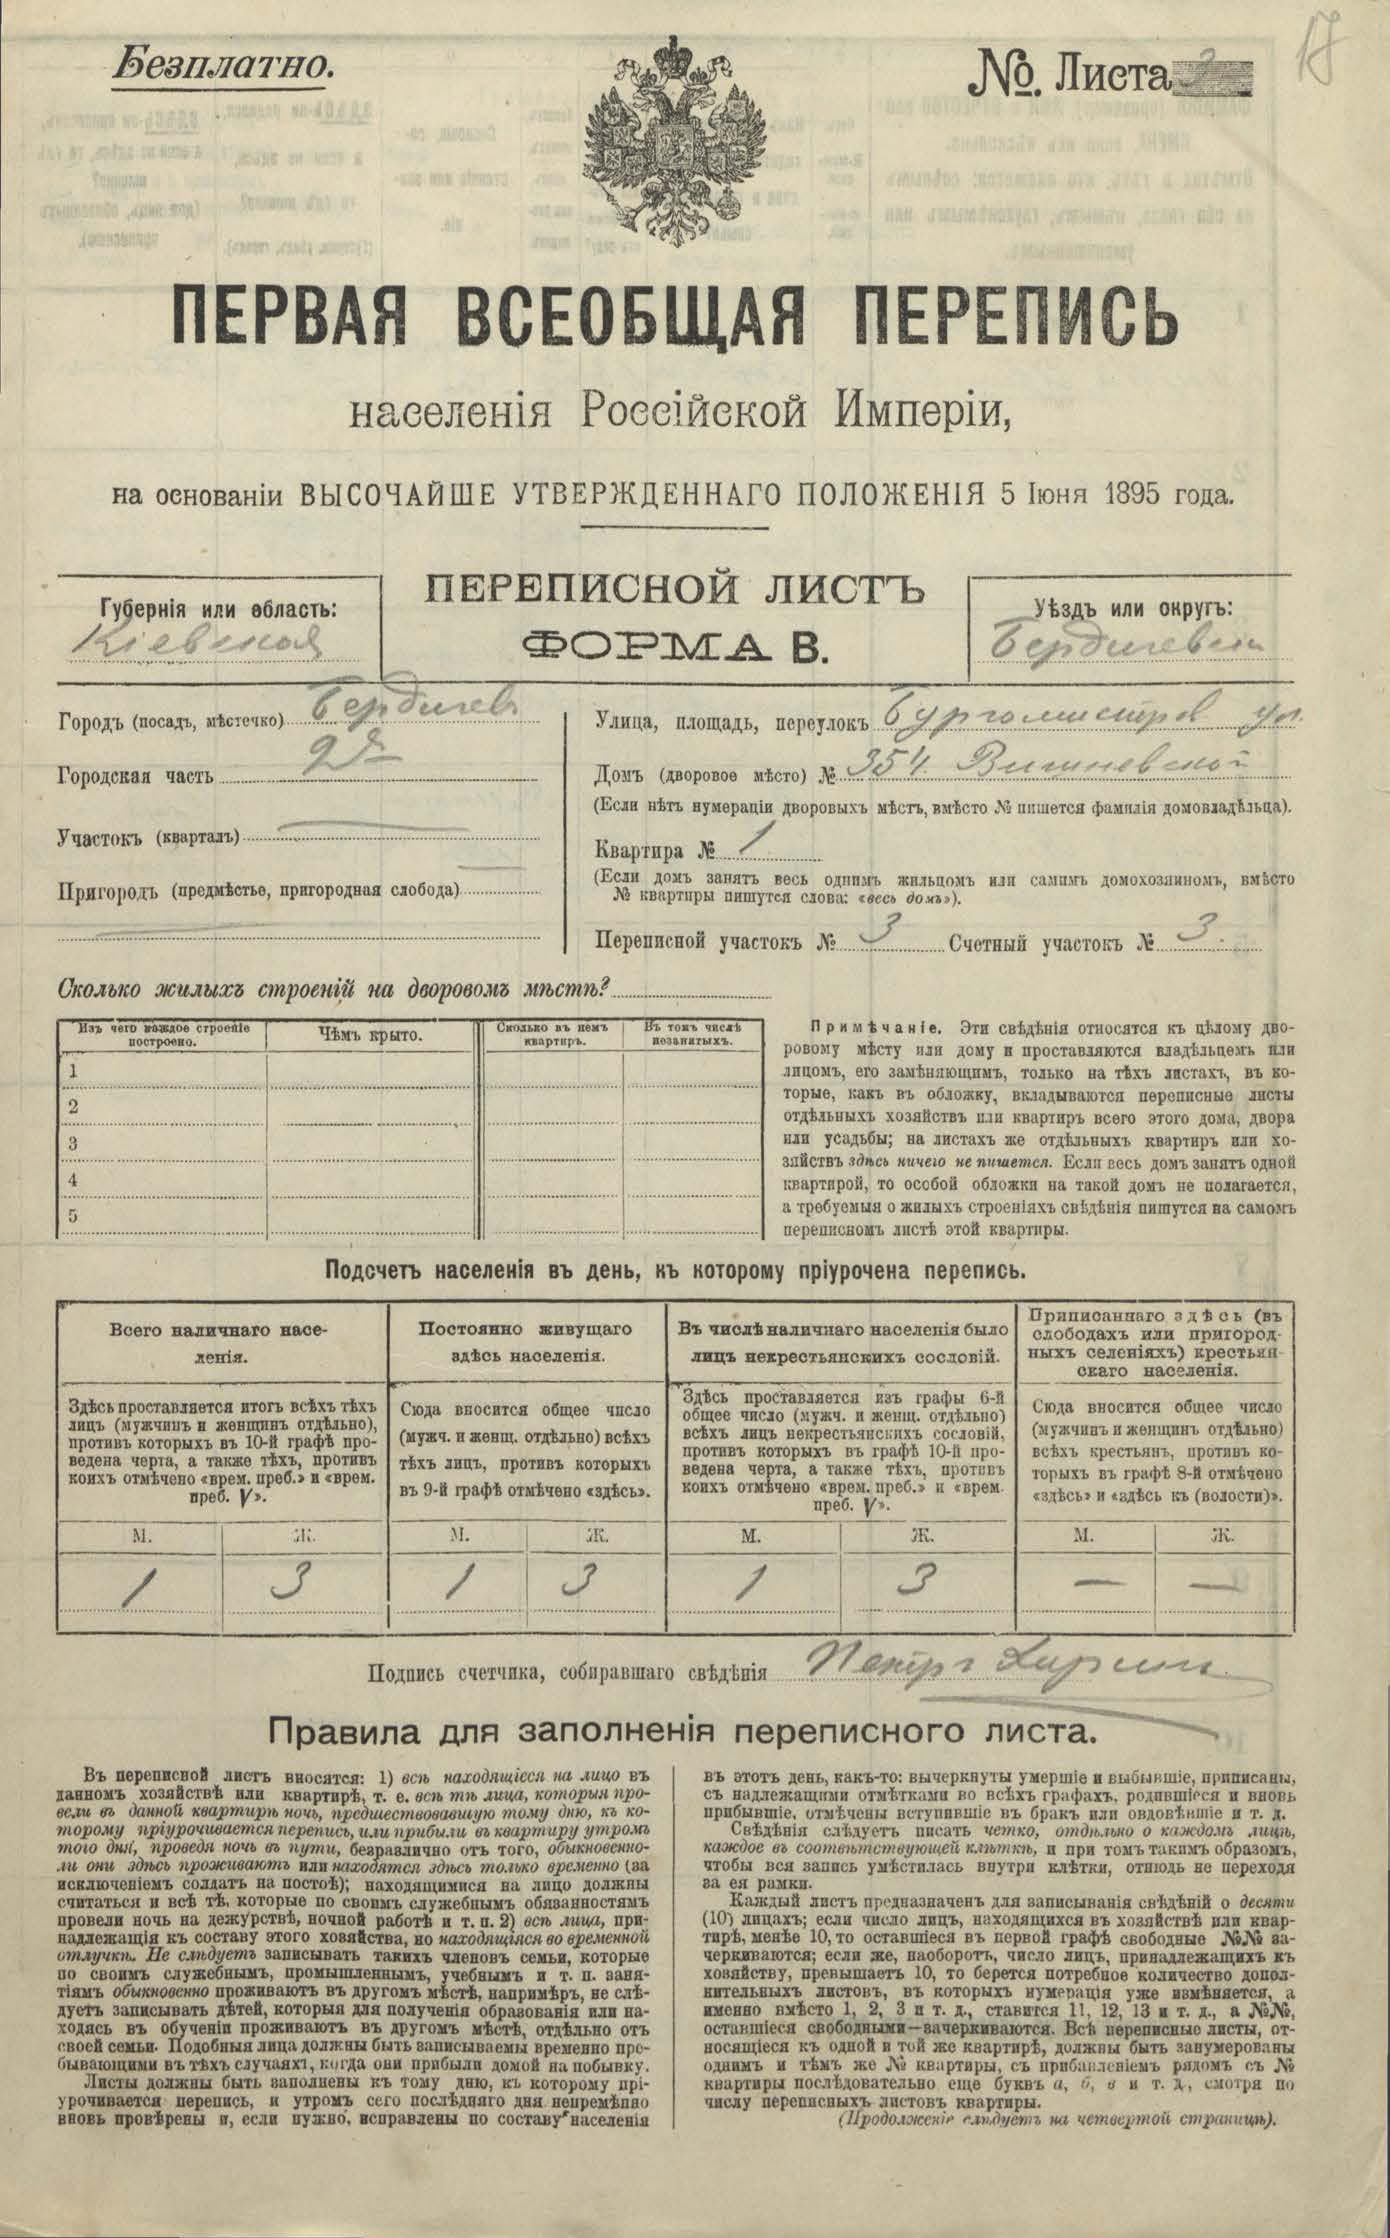 17
Безплатно.
№. Листа
ПЕРВАЯ ВСЕОБЩАЯ ПЕРЕПИСЬ
населенія Россійской Имперіи,
на основаніи ВЫСОЧАЙШЕ УТВЕРЖДЕННАГО ПОЛОЖЕНІЯ 5 Іюня 1895 года.
ПЕРЕПИСНОЙ ЛИСТЪ
ФОРМА В.
Губернія или область:
Кіевская
Уѣздъ или округъ:
Бердичевск
Городъ (посад, мѣстечко) Бердичев
Городская часть 2я
Участокъ (кварталъ)
Пригородъ (предмѣстье, пригородная слобода)
Улица, площадь, переулокъ Бургомистров ул.
Домъ (дворовое мѣсто) № 354. Вишневской
(Если нѣтъ нумераціи дворовыхъ мѣстъ, вмѣсто № пишется фамилія домовладѣльца).
Квартира № 1
(Если домъ занятъ весь однимъ жильцомъ или самимъ домохозяиномъ, вмѣсто
№ квартиры пишутся слова: «весь домъ»).
Переписной участокъ № 3 Счетный участокъ № 3.
Сколько жилыхъ строеній на дворовомъ мѣстѣ?
Изъ чего каждое строеніе
построено.
Чѣмъ крыто.
Сколько въ немъ
квартиръ.
Въ томъ числѣ
незанятыхъ.
1
2
3
4
5
Примѣчаніе. Эти свѣдѣнія относятся къ цѣлому дво-
ровому мѣсту или дому и проставляются владѣльцемъ или
лицомъ, его замѣняющимъ, только на тѣхъ листахъ, въ ко-
торые, какъ въ обложку, вкладываются переписные листы
отдѣльныхъ хозяйствъ или квартиръ всего этого дома, двора
или усадьбы; на листахъ же отдѣльныхъ квартиръ или хо-
зяйствъ здѣсь ничего не пишется. Если весь домъ занятъ одной
квартирой, то особой обложки на такой домъ не полагается,
а требуемыя о жилыхъ строеніяхъ свѣдѣнія пишутся на самомъ
переписномъ листѣ этой квартиры.
Подсчетъ населенія въ день, къ которому пріурочена перепись.
Всего наличнаго насе-
ленія.
Здѣсь проставляется итогъ всѣхъ тѣхъ
лицъ (мужчинъ и женщинъ отдѣльно),
противъ которыхъ въ 10-й графѣ про-
ведена черта, а также тѣхъ, противъ
коихъ отмѣчено «врем. преб.» и «врем.
преб. V».
Постоянно живущаго
здѣсь населенія.
Сюда вносится общее число
(мужч. и женщ. отдѣльно) всѣхъ
тѣхъ лицъ, противъ которыхъ
въ 9-й графѣ отмѣчено «здѣсь».
Въ числѣ наличнаго населенія было
лицъ некрестьянскихъ сословій.
Здѣсь проставляется изъ графы 6-й
общее число (мужч. и женщ. отдѣльно)
всѣхъ лицъ некрестьянскихъ сословій,
противъ которыхъ въ графѣ 10-й про-
ведена черта, а также тѣхъ, противъ
коихъ отмѣчено «врем. преб.» и «врем.
преб. V».
Приписаннаго здѣсь (въ
слободахъ или пригород-
ныхъ селеніяхъ) крестьян-
скаго населенія.
Сюда вносится общее число
(мужчинъ и женщинъ отдѣльно)
всѣхъ крестьянъ, противъ ко-
торыхъ въ графѣ 8-й отмѣчено
«здѣсь» и «здѣсь къ (волости)».
М. Ж. М. Ж. М. Ж. М. Ж.
1 3 1 3 1 3 — —
Подпись счетчика, собиравшаго свѣдѣнія Петръ
Правила для заполненія переписного листа.
Въ переписной листъ вносятся: 1) всѣ находящіеся на лицо въ
данномъ хозяйствѣ или квартирѣ, т. е. всѣ тѣ лица, которыя про-
вели въ данной квартирѣ ночь, предшествовавшую тому дню, къ ко-
торому пріурочивается перепись, или прибыли въ квартиру утромъ
того дня, проведя ночь въ пути, безразлично отъ того, обыкновенно-
ли они здѣсь проживаютъ или находятся здѣсь только временно (за
исключеніемъ солдатъ на постоѣ); находящимися на лицо должны
считаться и всѣ тѣ, которые по своимъ служебнымъ обязанностямъ
провели ночь на дежурствѣ, ночной работѣ и т. п. 2) всѣ лица, при-
надлежащія къ составу этого хозяйства, но находящіяся во временной
отлучкѣ. Не слѣдуетъ записывать такихъ членовъ семьи, которые
по своимъ служебнымъ, промышленнымъ, учебнымъ и т. п. заня-
тіямъ обыкновенно проживаютъ въ другомъ мѣстѣ, напримѣръ, не слѣ-
дуетъ записывать дѣтей, которыя для полученія образованія или на-
ходясь въ обученіи проживаютъ въ другомъ мѣстѣ, отдѣльно отъ
своей семьи. Подобныя лица должны быть записываемы временно пре-
бывающими въ тѣхъ случаяхъ, когда они прибыли домой на побывку.
Листы должны быть заполнены къ тому дню, къ которому прі-
урочивается перепись, и утромъ сего послѣдняго дня непремѣнно
вновь провѣрены и, если нужно, исправлены по составу населенія
въ этотъ день, какъ-то: вычеркнуты умершіе и выбывшіе, приписаны,
съ надлежащими отмѣтками во всѣхъ графахъ, родившіеся и вновь
прибывшіе, отмѣчены вступившіе въ бракъ или овдовѣвшіе и т. д.
Свѣдѣнія слѣдуетъ писать четко, отдѣльно о каждомъ лицѣ,
каждое въ соотвѣтствующей клѣткѣ, и при томъ такимъ образомъ,
чтобы вся запись умѣстилась внутри клѣтки, отнюдь не переходя
за ея рамки.
Каждый листъ предназначенъ для записыванія свѣдѣній о десяти
(10) лицахъ; если число лицъ, находящихся въ хозяйствѣ или квар-
тирѣ, менѣе 10, то оставшіеся въ первой графѣ свободные №№ за-
черкиваются; если же, наоборотъ, число лицъ, принадлежащихъ къ
хозяйству, превышаетъ 10, то берется потребное количество допол-
нительныхъ листовъ, въ которыхъ нумерація уже измѣняется, а
именно вмѣсто 1, 2, 3 и т. д., ставится 11, 12, 13 и т. д., а №№,
оставшіеся свободными—зачеркиваются. Всѣ переписные листы, от-
носящіеся къ одной и той же квартирѣ, должны быть занумерованы
однимъ и тѣмъ же № квартиры, съ прибавленіемъ рядомъ съ №
квартиры послѣдовательно еще буквъ а, б, в и т. д., смотря по
числу переписныхъ листовъ квартиры.
(Продолженіе слѣдуетъ на четвертой страницѣ).